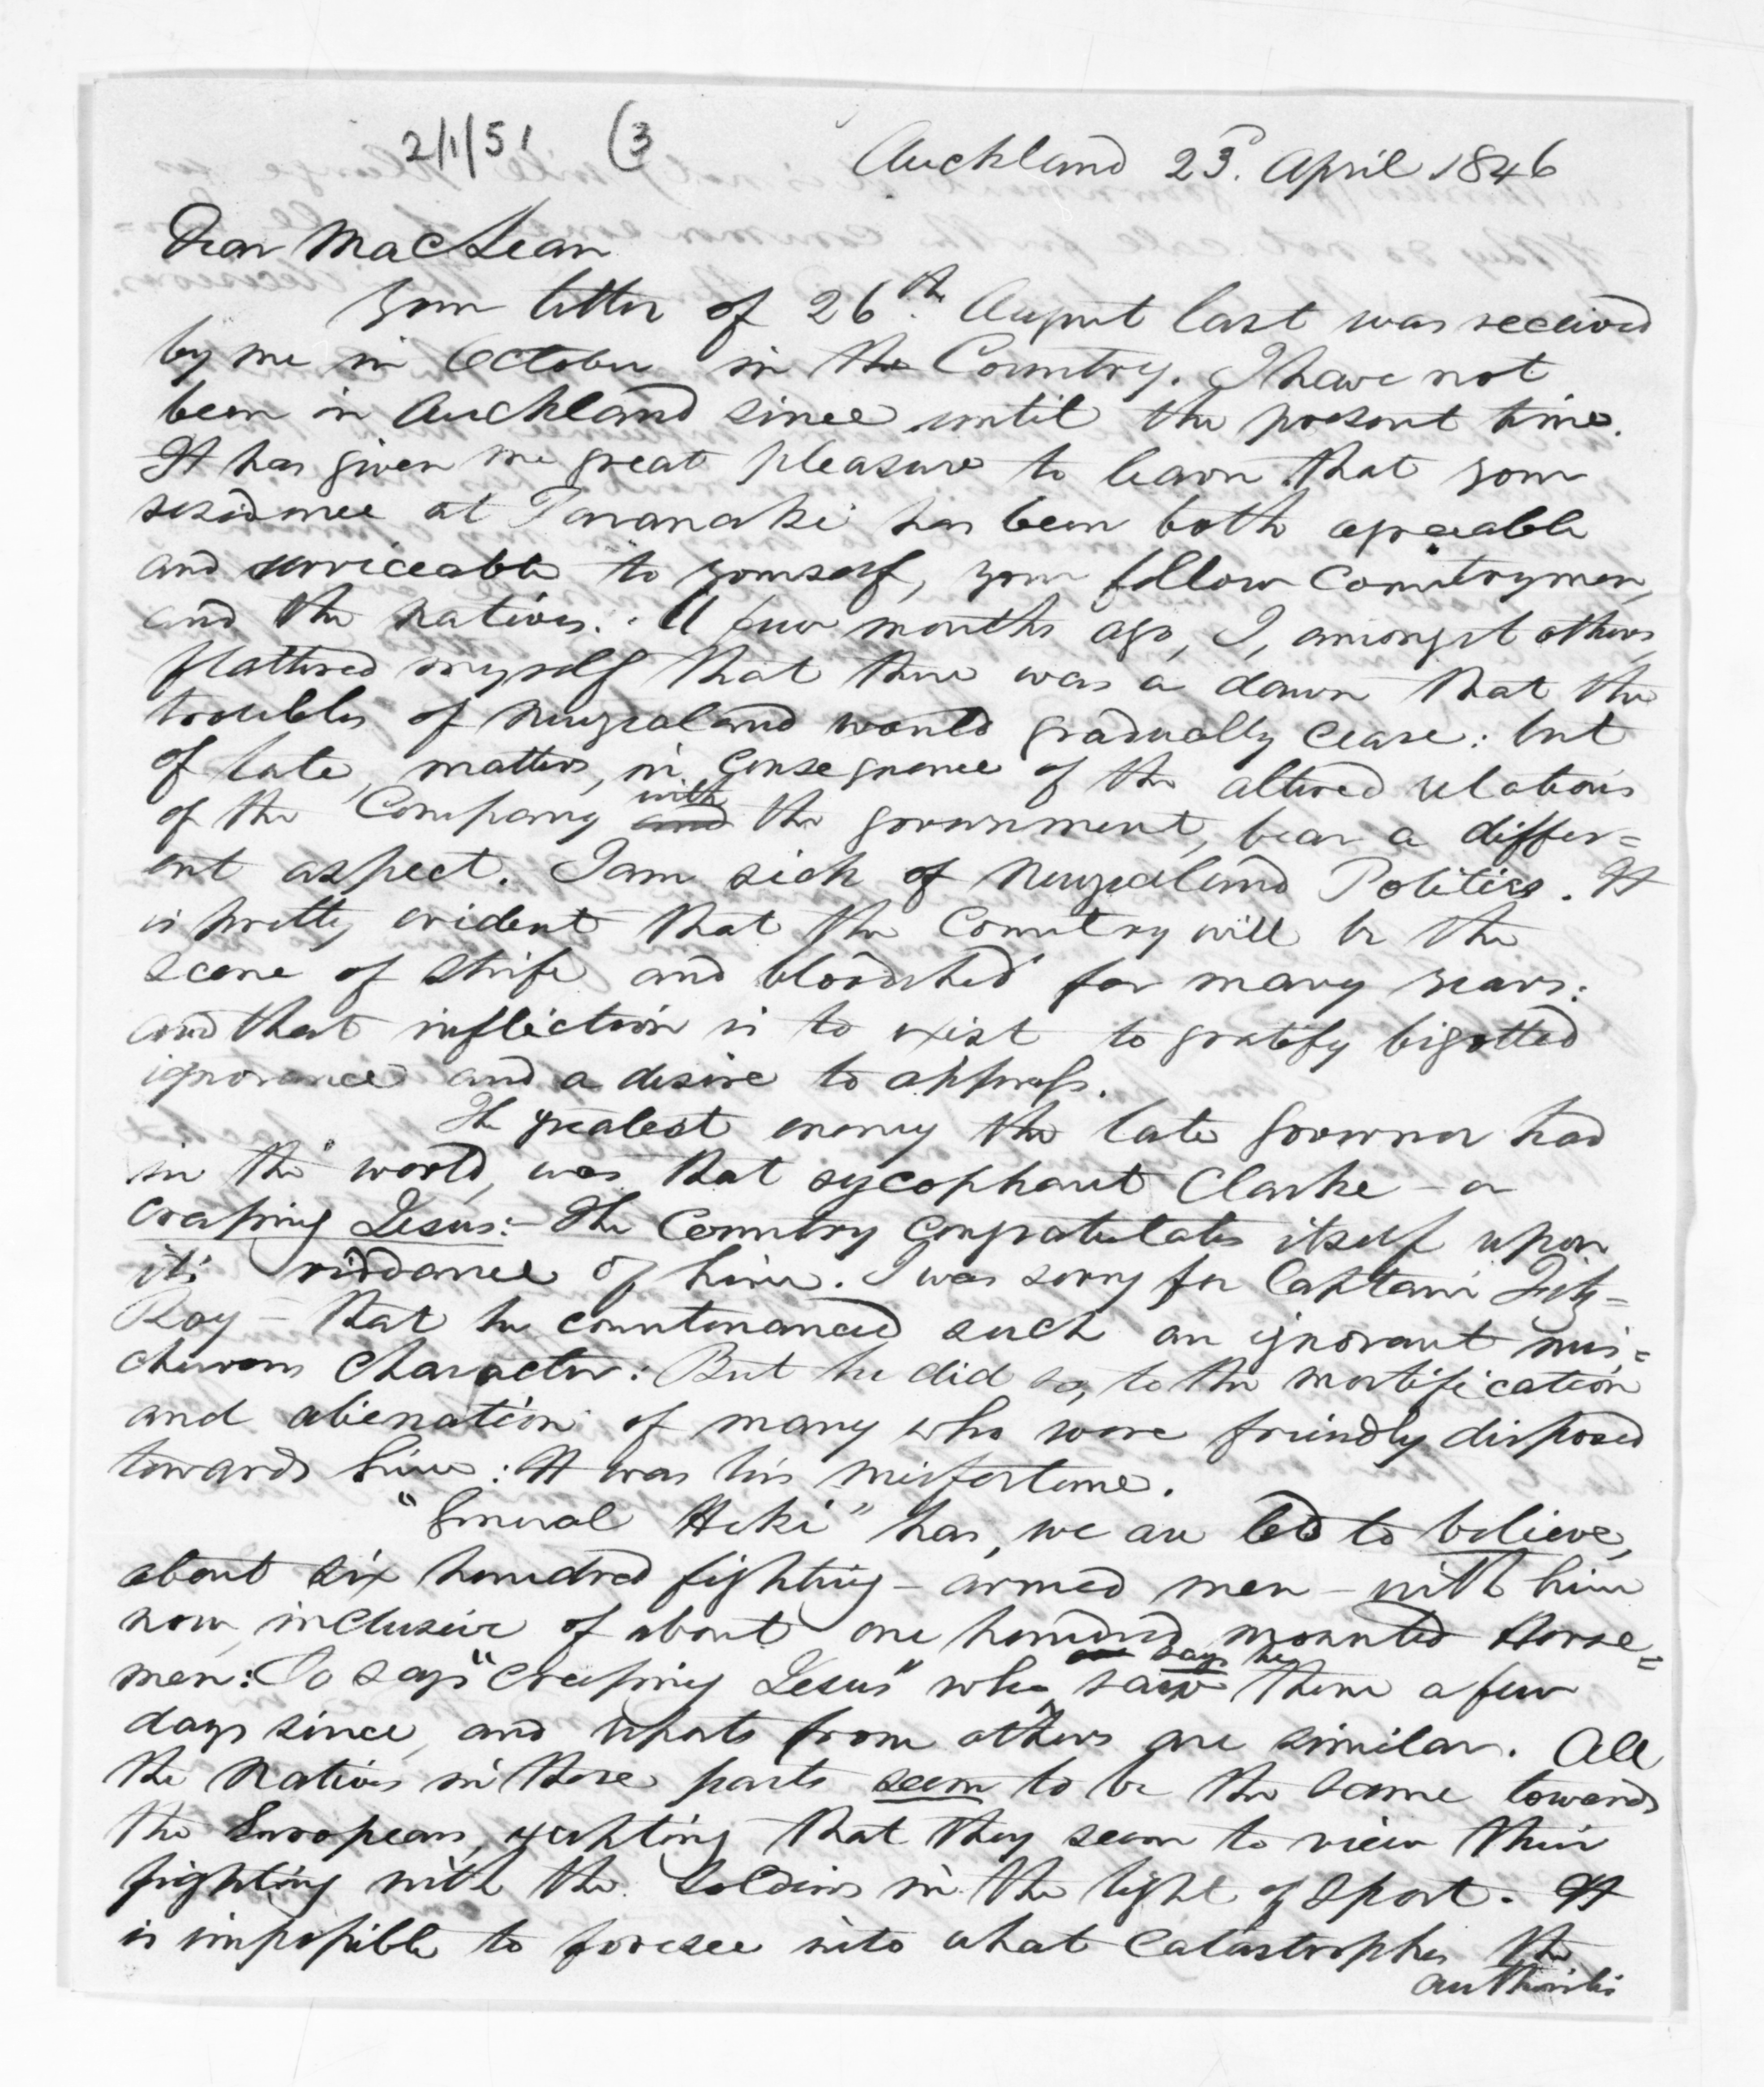 2/1/51 (3
Auckland 23d. April 1846
Dear MacLean
Your letter of 26th. August last was received
by me in October in the Country. I have not
been in Auckland since until the present time.
It has given me great pleasure to learn that your
residence at Taranaki has been both agreeable
and serviceable to yourself, your fellow Countrymen,
and the natives. A few months ago, I, amongst others,
flattered myself that there was a dawn that the
troubles of Newzealand would gradually cease: but
of late, matters, in consequence of the altered relations
of the Company and with the government, bear a differ=
ent aspect. I am sick of Newzealand Politics. It
is pretty evident that the Country will be the
scene of strife and bloodshed for many years:
and that infliction is to exist to gratify bigotted
ignorance and a desire to oppress.
The greatest enemy the late Governor had
in the world, was that sycophant Clarke - a
Creaping Jesus:- The Country Congratulates itself upon
its riddance of him. I was sorry for Captain Fitz=
Roy - that he countenanced such an ignorant mis=
chievous Character: But he did so, to the mortification
and alienation of many who were friendly disposed
towards him: It was his misfortune.
"General Heki" has, we are led to believe,
about six hundred fighting - armed men - with him
now, inclusive of about one hundred mounted Horse=
men: So says "Creaping Jesus" who says he saw them a few
days since, and reports from others are similar. All
the Natives in these parts seem to be the same towards
the Europeans, excepting that they seem to view their
fighting with the Soldiers in the light of Sport. It
is impossible to foresee into what Catastrophes the
authorities